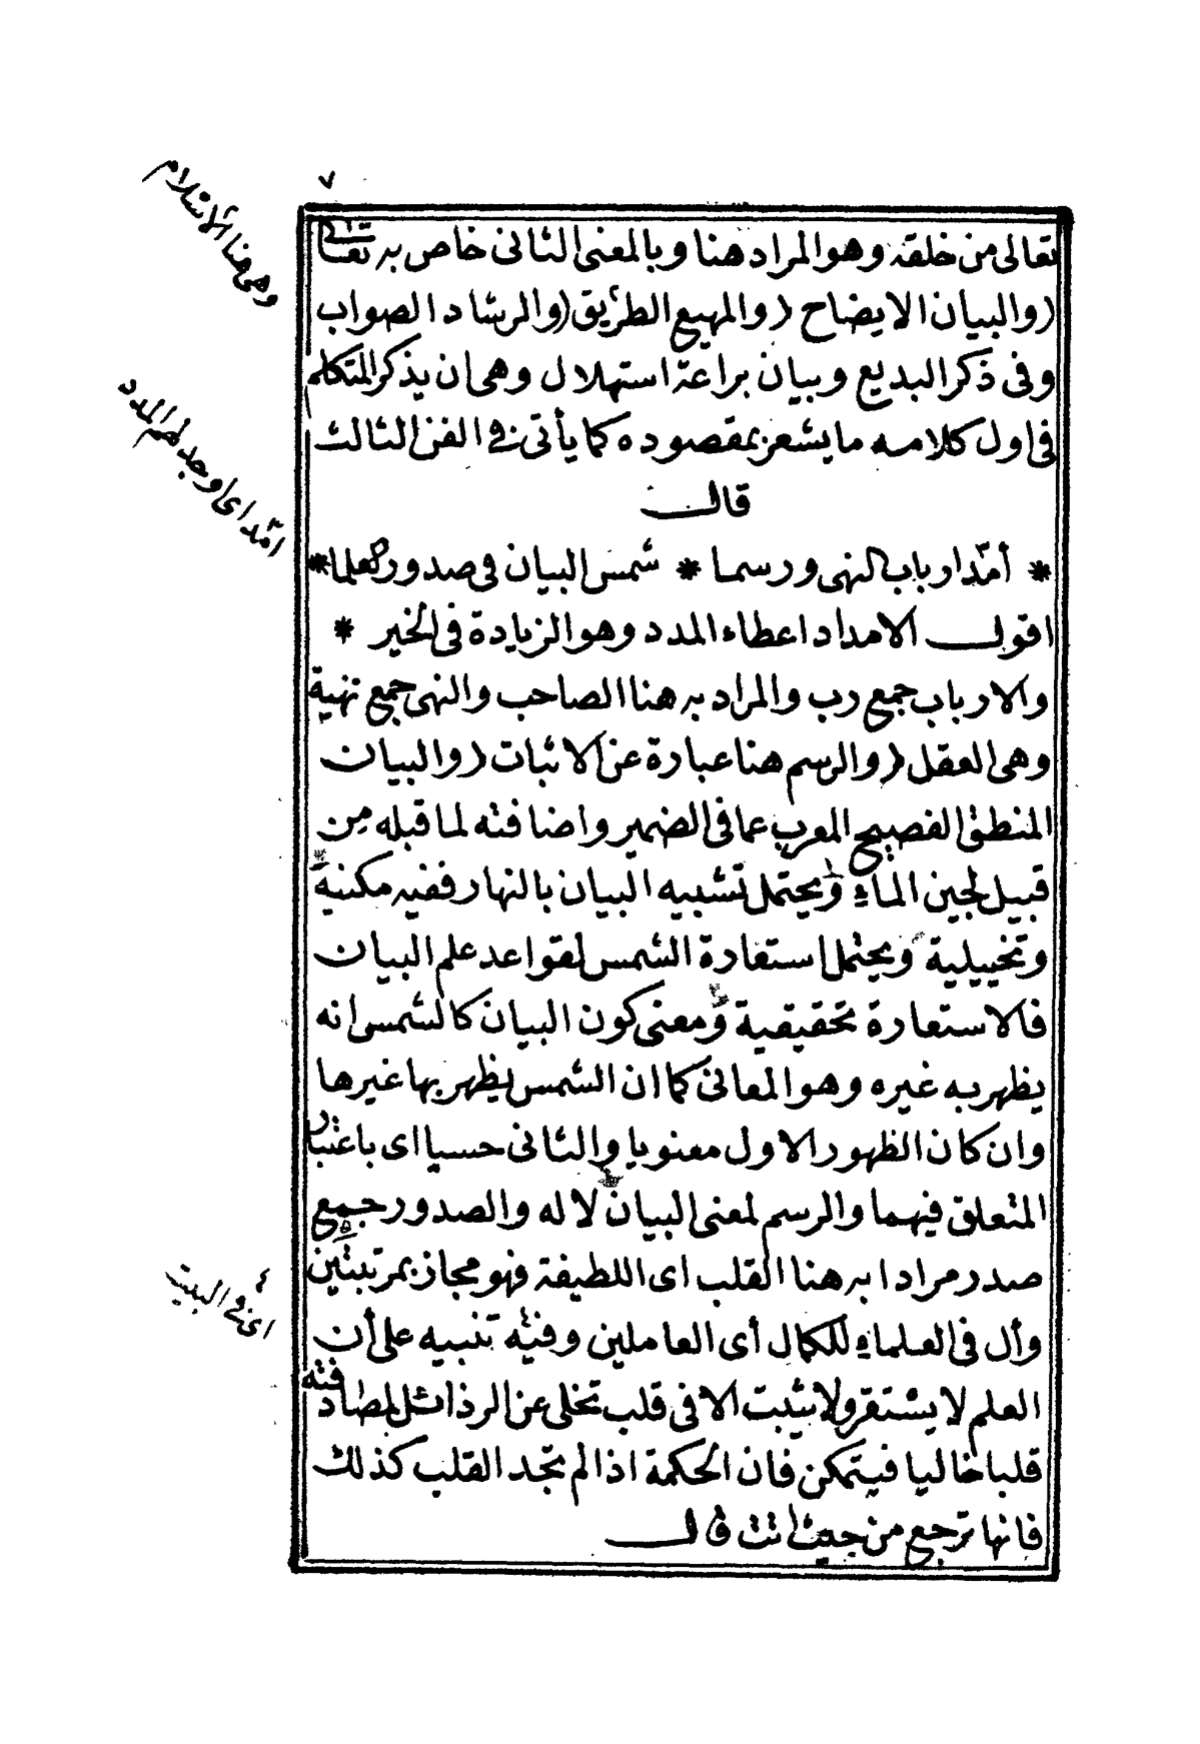 ٧
تعالى من خلقه وهو المراد هنا وبالمعنى الثانى خاص به تعالى
(والبيان الايضاح (والمهيع الطريق (والرشاد الصواب
وفى ذكر البديع وبيان براعة استهلال وهى ان يذكر المتكلم
فى اول كلامه ما يشعر بمقصوده كما يأتى فى الفن الثالث
قال
* أمدّ ارباب النهى ورسما * شمس البيان فى صدور العلما *
اقول الامداد اعطاء المدد وهو الزيادة فى الخير *
والارباب جمع رب والمراد به هنا الصاحب والنهى جمع نهية
وهى العقل (والرسم هنا عبارة عن الاثبات (والبيان
المنطق الفصيح المعرب عما فى الضمير واضافته لما قبله من
قبيل لجين الماء ويحتمل تشبيه البيان بالنهار ففيه مكنية
وتخييلية ويحتمل استعارة الشمس لقواعد علم البيان
فالاستعارة تحقيقية ومعنى كون البيان كالشمس انه
يظهر به غيره وهو المعانى كما ان الشمس يظهر بها غيرها
وان كان الظهور الاول معنويا والثانى حسيا اى باعتبار
المتعلق فيهما والرسم لمعنى البيان لا له والصدور جمع
صدر مرادا به هنا القلب اى اللطيفة فهو مجاز بمرتبتين
وأل فى العلماء للكمال أى العاملين وفيه تنبيه على أن
العلم لا يستقر ولا يثبت الا فى قلب تخلى عن الرذائل لمصادفته
قلبا خاليا فيتمكن فان الحكمة اذا لم تجد القلب كذلك
فانها ترجع من حيث اتت قال
وهى هنا الاسلام
امدّ اى اوجد لهم المدد
٤
اى فى البيت